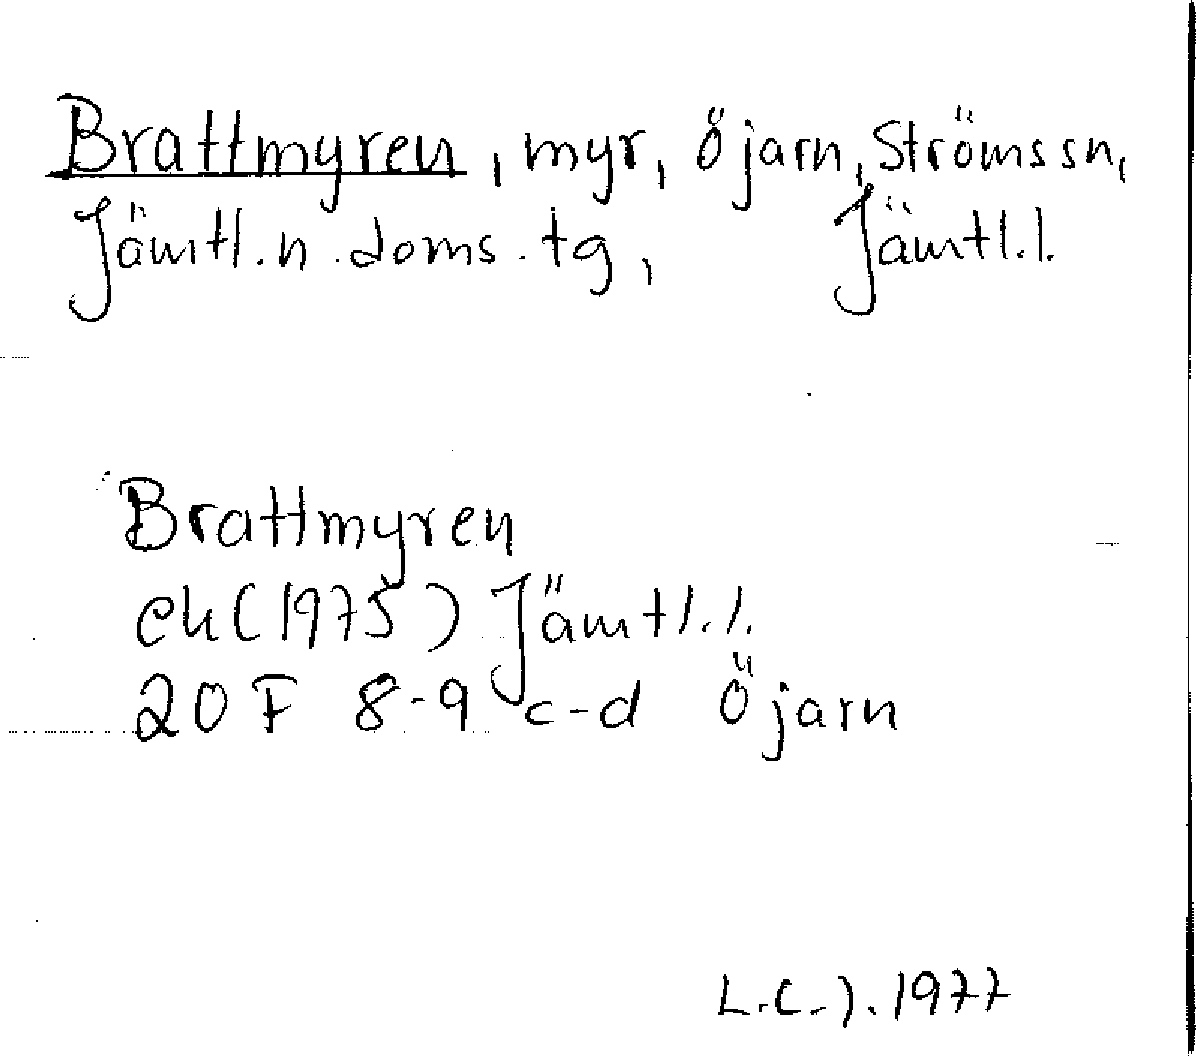 Brattmyren, myr, Öjarn, Ströms sn,
Jämtl. n. doms. tg, Jämtl. l.
Brattmyren
ek (1975) Jämtl. l.
20 F 8-9 c-d Öjarn
L.C.J. 1977